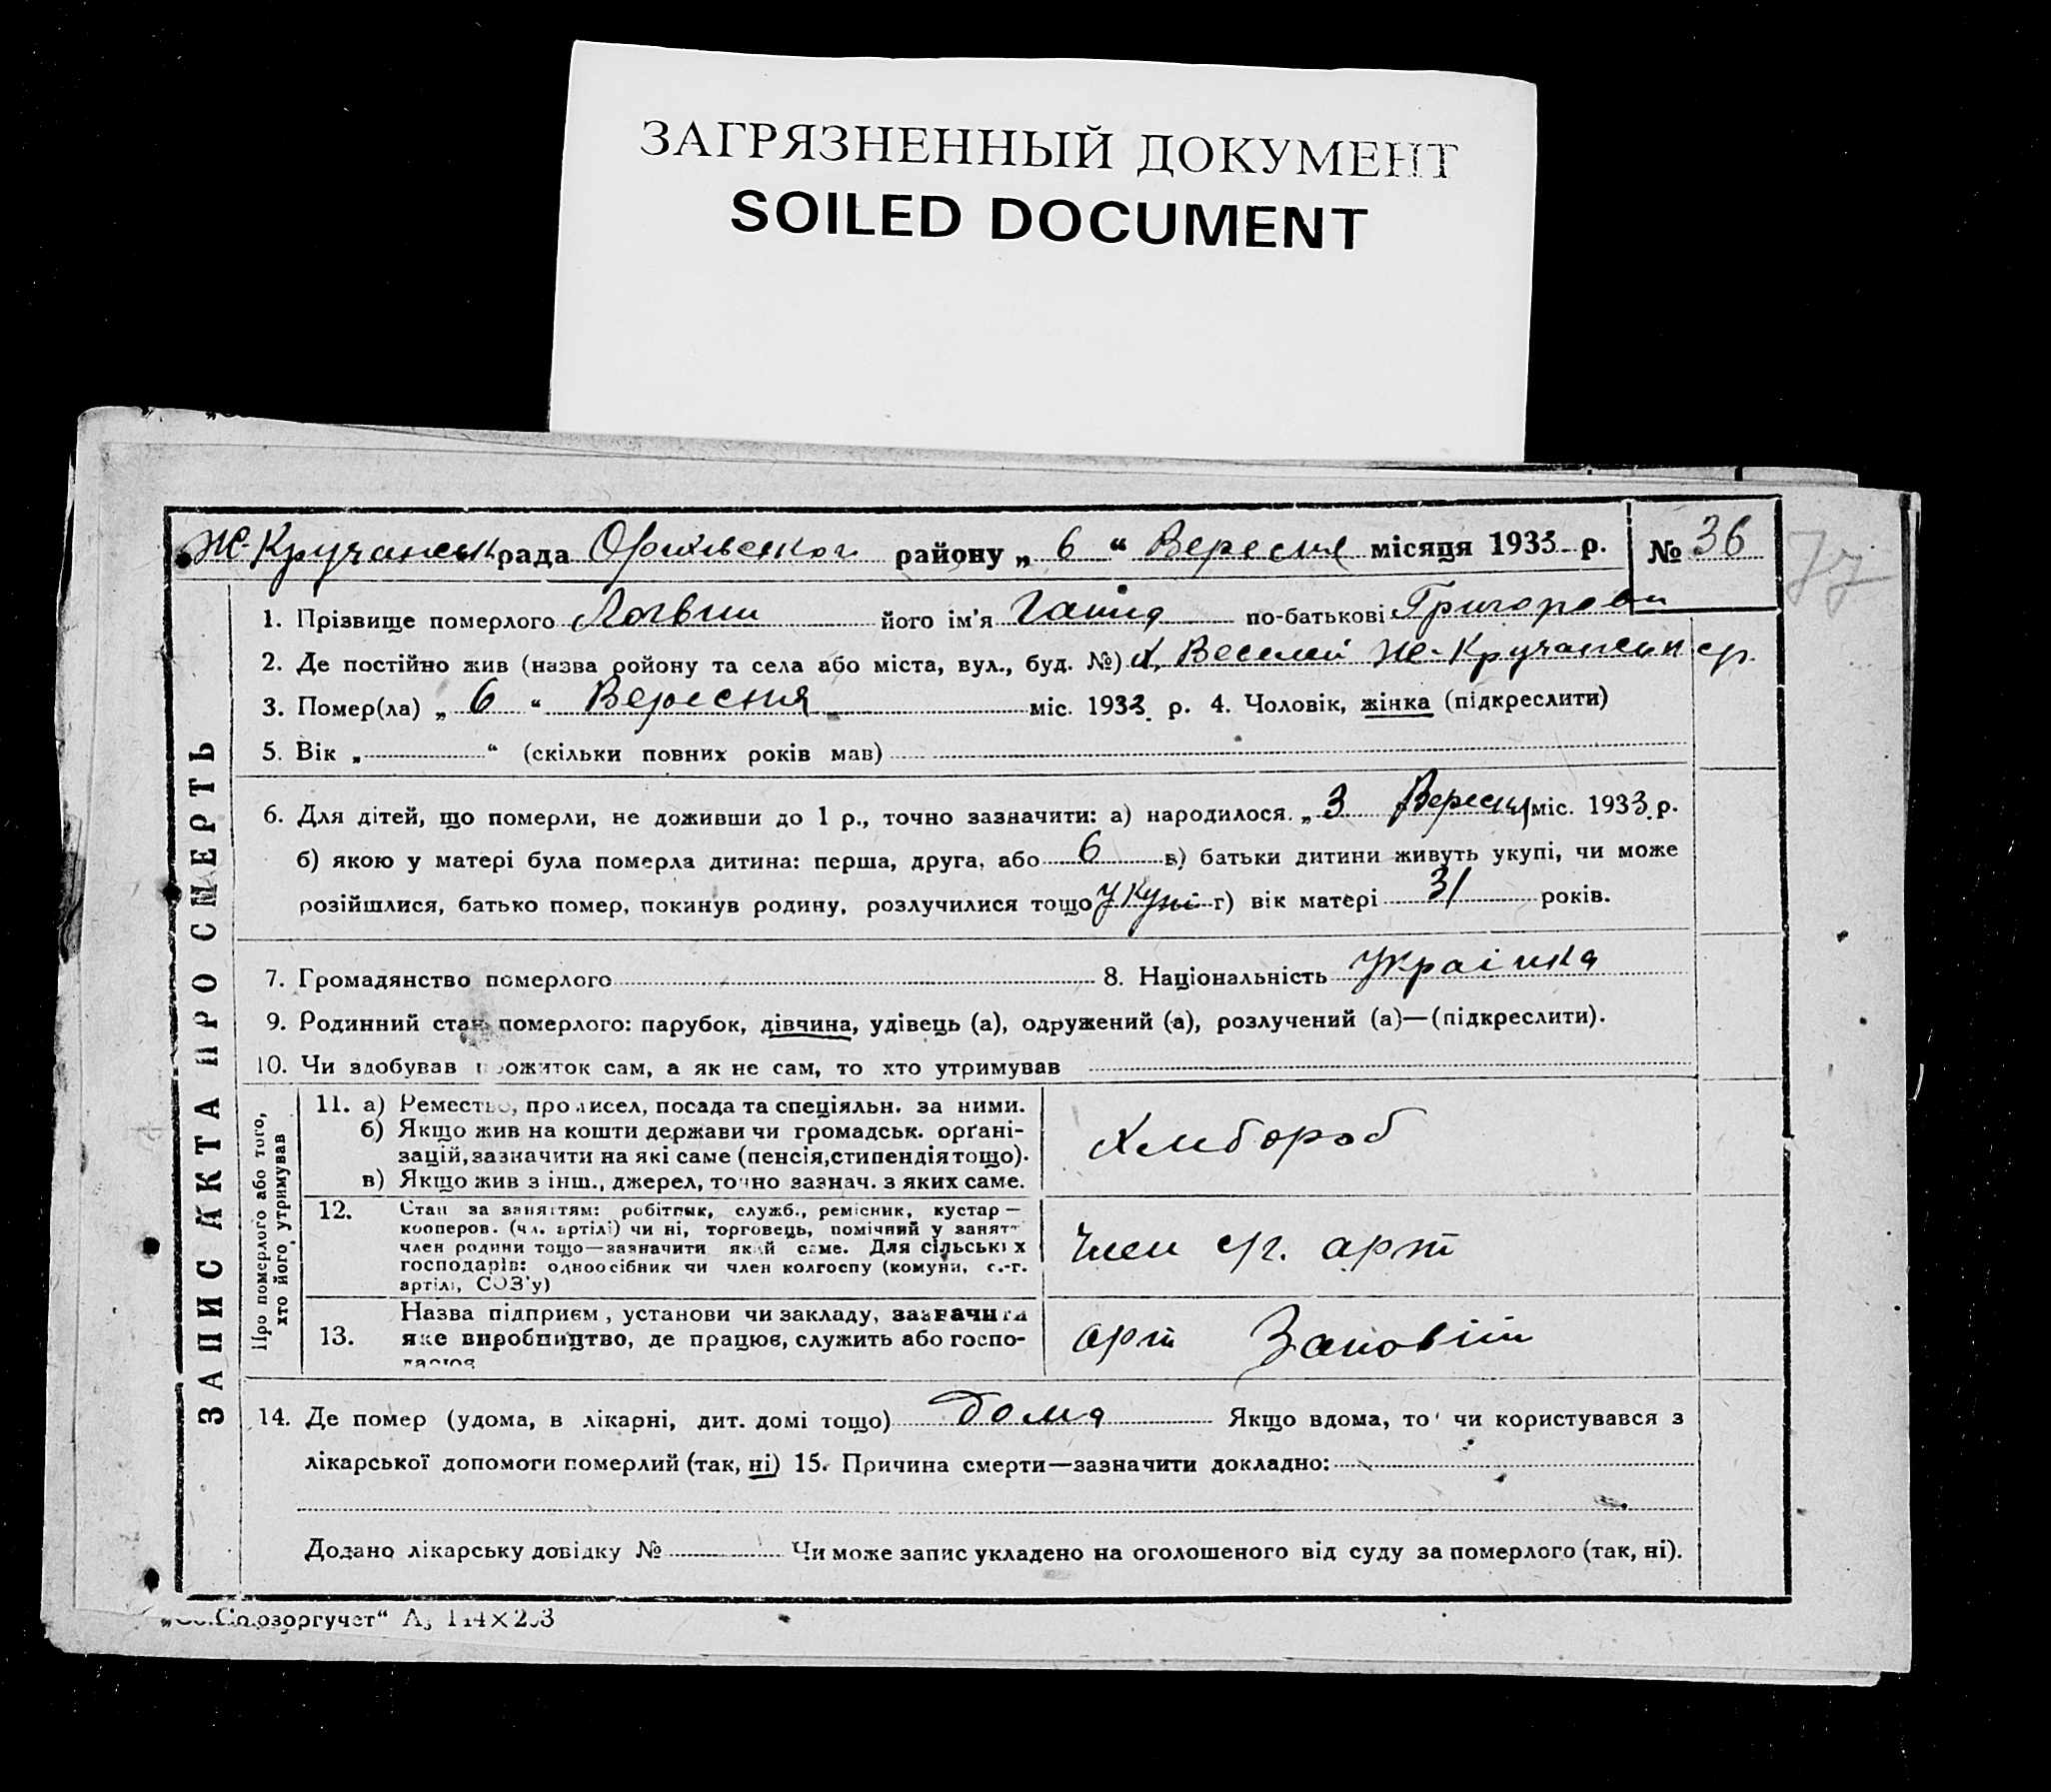 ЗАГРЯЗНЕННЫЙ ДОКУМЕНТ
SOILED DOCUMENT
Ж-Кручанськ рада Оріхівськог району „ 6 “ Вересня місяця 1933 р. № 36
77
ЗАПИС АКТА ПРО СМЕРТЬ
1. Прізвище померлого Логвин його ім’я Гашка по-батькові Григоровн
2. Де постійно жив (назва ройону та села або міста, вул., буд. №) х. Веселий Ж-Кручанськ ср.
3. Помер(ла) „ 6 “ Вересня міс. 1933 р. 4. Чоловік, жінка (підкреслити)
5. Вік „ “ (скільки повних років мав)
6. Для дітей, що померли, не доживши до 1 р., точно зазначити: а) народилося „ 3 Вересня міс. 1933 р.
б) якою у матері була померла дитина: перша, друга, або 6 в) батьки дитини живуть укупі, чи може
розійшлися, батько помер, покинув родину, розлучилися тощо укупі г) вік матері 31 років.
7. Громадянство померлого 8. Національність Украінка
9. Родинний стан померлого: парубок, дівчина, удівець (а), одружений (а), розлучений (а)—(підкреслити).
10. Чи здобував прожиток сам, а як не сам, то хто утримував
Про померлого або того,
хто його утримував
11. а) Ремество, промисел, посада та спеціяльн. за ними.
б) Якщо жив на кошти держави чи громадськ. орґані-
зацій, зазначити на які саме (пенсія, стипендія тощо).
в) Якщо жив з інш., джерел, точно зазнач. з яких саме.
Хлибороб
12. Стан за заняттям: робітник, служб., ремісник, кустар—
кооперов. (чл. артілі) чи ні, торговець, помічний у занятт
член родини тощо—зазначити який саме. Для сільських
господарів: одноосібник чи член колгоспу (комуни, с.-г.
артілі, СОЗ’у)
Член с/г. арт
13. Назва підприєм, установи чи закладу, зазначити
яке виробництво, де працює, служить або госпо-
арт Заповіт
14. Де помер (удома, в лікарні, дит. домі тощо) Дома Якщо вдома, то чи користувався з
лікарської допомоги померлий (так, ні) 15. Причина смерти—зазначити докладно:
Додано лікарську довідку № Чи може запис укладено на оголошеного від суду за померлого (так, ні).
Союзоргучет“ А₅ 144×203